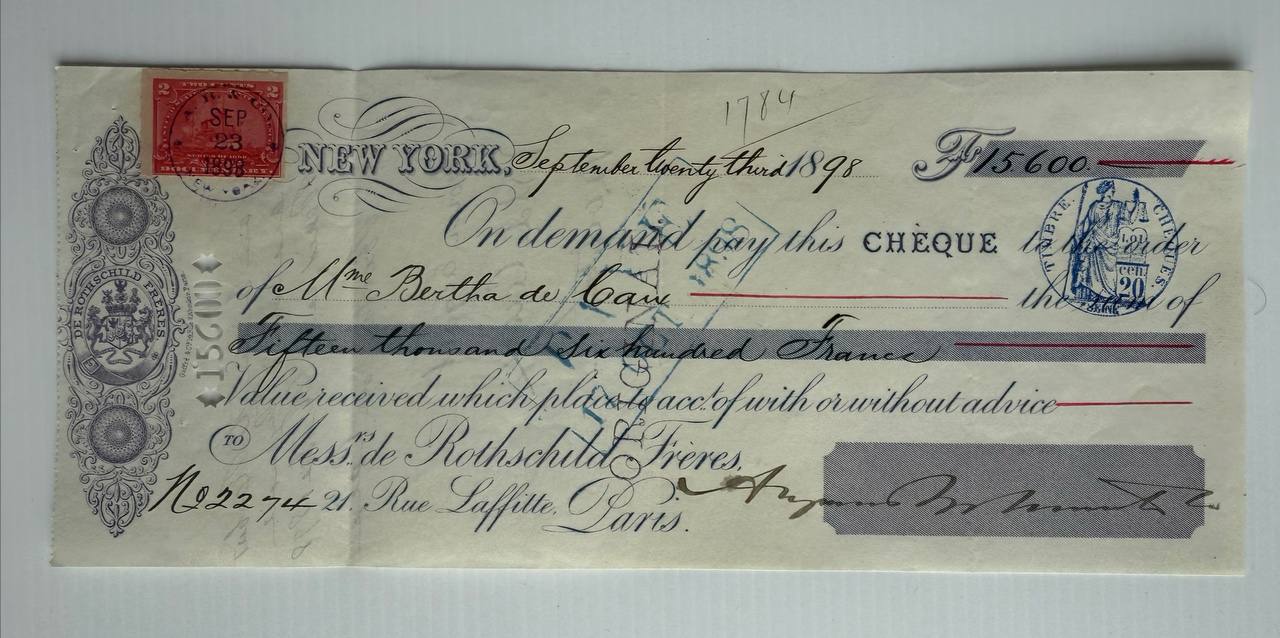 1784
2 TWO CENTS 2
A.B. & Co.
SEP
23
1898
SERIES OF 1898
DOCUMENTARY
NEW YORK, September twenty third 1898 Fcs 15.600.
On demand pay this CHÈQUE to the order
of Mme Bertha de Caux the sum of
Fifteen thousand six hundred Francs
Value received which place to acct. of with or without advice
TO Messrs. de Rothschild Frères,
No 2274 21. Rue Laffitte, Paris.
TIMBRE. CHÈQUES.
LOI
cen
20
SEINE
DE ROTHSCHILD FRERES
15600
ORIGINAL